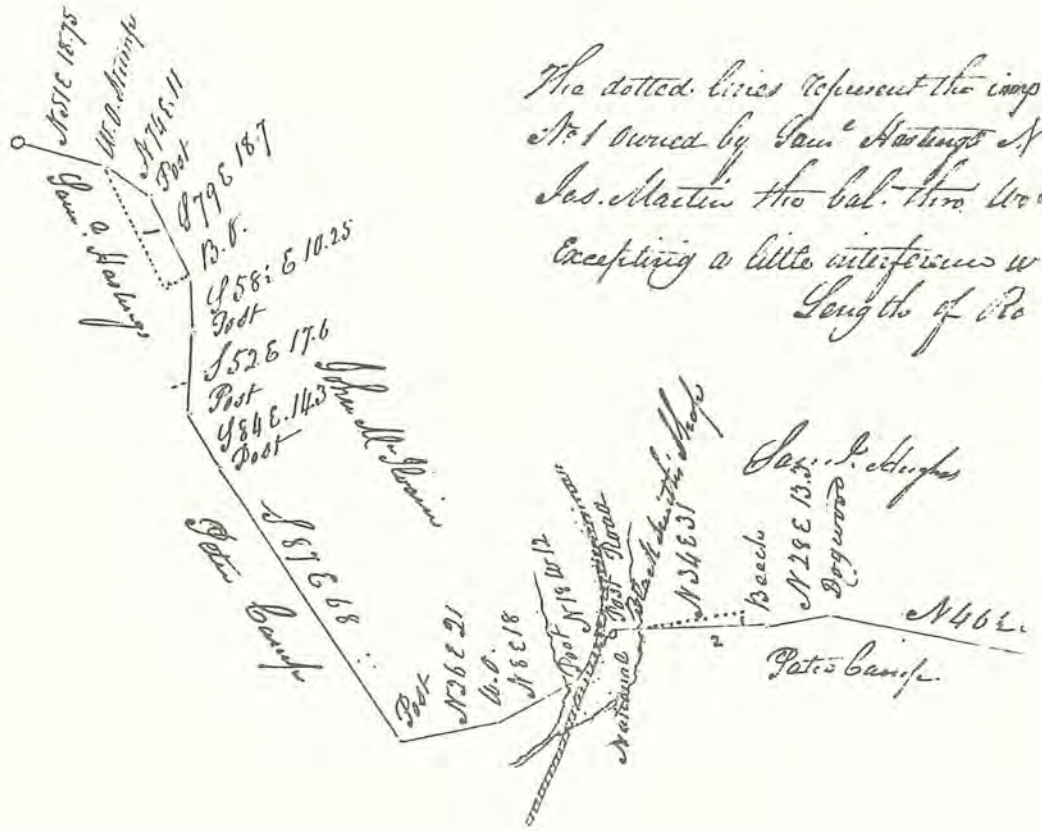 The dotted lines represent the imp
No 1 owned by Saml Hastings N
Jas. Martin the bal. thro. Wo
Excepting a little interference w
Length of Ro
N51E 18.75
W.O. Stump
N74E.11
Post
S79E 18.7
B.O.
S58½ E 10.25
Post
S52E 17.6
Post
S84E.14.3
Post
Saml Hastings
1
John McIlvain
S87E 68
Peter Camp
Post
N26E 21
W.O.
N8E18
Post
N18W12
National Post Road
Blacksmith Shop
N34E31
2
Beech
N28E 13.3
Dogwood
Saml. Hughs
N46½.
Peter Camp.